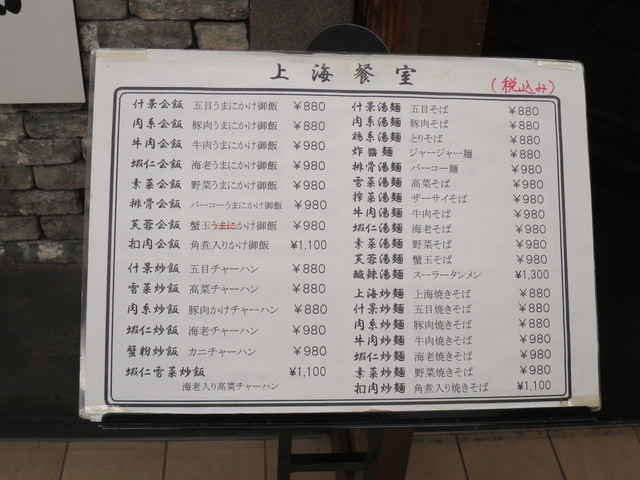 上海餐室
(税込み)
什景会飯 五目うまにかけ御飯 ¥880
肉糸会飯 豚肉うまにかけ御飯 ¥880
牛肉会飯 牛肉うまにかけ御飯 ¥980
蝦仁会飯 海老うまにかけ御飯 ¥980
素菜会飯 野菜うまにかけ御飯 ¥980
排骨会飯 パーコーうまにかけ御飯 ¥980
芙蓉会飯 蟹玉うまにかけ御飯 ¥980
扣肉会飯 角煮入りかけ御飯 ¥1,100
什景炒飯 五目チャーハン ¥880
雪菜炒飯 高菜チャーハン ¥880
肉糸炒飯 豚肉かけチャーハン ¥880
蝦仁炒飯 海老チャーハン ¥980
蟹粉炒飯 カニチャーハン ¥980
蝦仁雪菜炒飯 ¥1,100
海老入り高菜チャーハン
什景湯麺 五目そば ¥880
肉糸湯麺 豚肉そば ¥880
鶏糸湯麺 とりそば ¥880
炸醬麺 ジャージャー麺 ¥880
排骨湯麺 パーコー麺 ¥980
雪菜湯麺 高菜そば ¥980
搾菜湯麺 ザーサイそば ¥980
牛肉湯麺 牛肉そば ¥980
蝦仁湯麺 海老そば ¥980
素菜湯麺 野菜そば ¥980
芙蓉湯麺 蟹玉そば ¥980
酸辣湯麺 スーラータンメン ¥1,300
上海炒麺 上海焼きそば ¥880
什景炒麺 五目焼きそば ¥880
肉糸炒麺 豚肉焼きそば ¥880
牛肉炒麺 牛肉焼きそば ¥980
蝦仁炒麺 海老焼きそば ¥980
素菜炒麺 野菜焼きそば ¥980
扣肉炒麺 角煮入り焼きそば ¥1,100